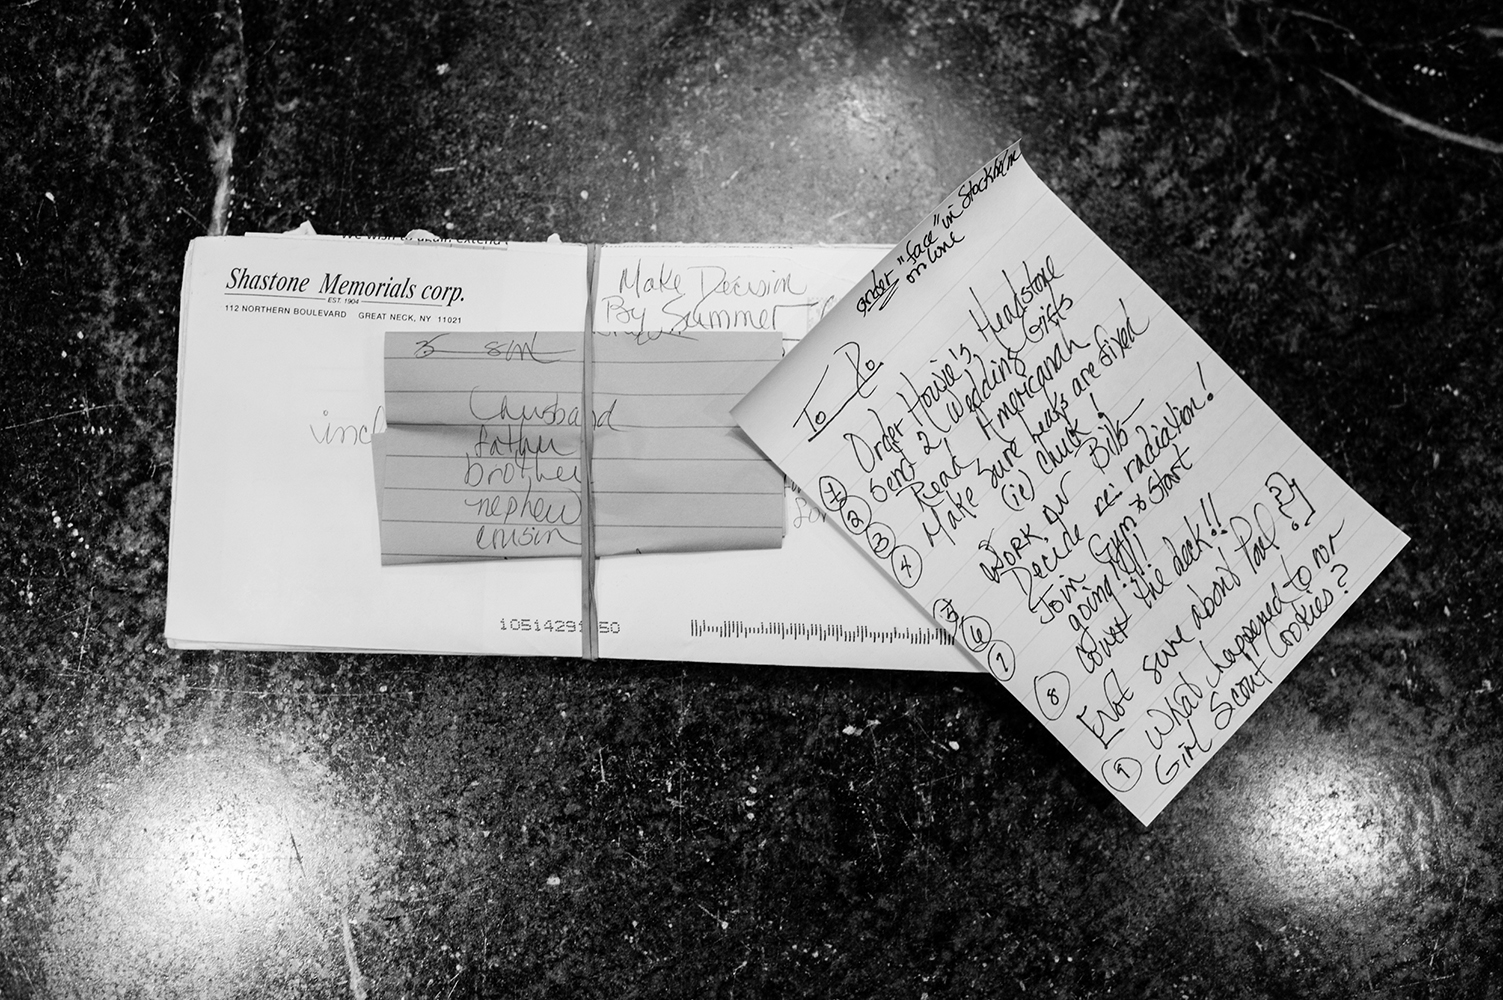 We wish to again extend
Shastone Memorials corp.
EST. 1904
112 NORTHERN BOULEVARD GREAT NECK, NY 11021
Make Decision
By Summer
husband
father
brother
nephew
cousin
10514291 50
order "face" in Stockholm
on line
To Do
① Order Howie's Headstone
② Send 2 Wedding Gifts
③ Read Americanah
④ Make sure leaks are fixed
(ie) check!
⑤ Work on Bills
⑥ Decide re: radiation!
⑦ Join Gym & Start
going!!!!
⑧ cover the deck!!
[Not sure about Pool?]
⑨ What happened to our
Girl Scout Cookies?